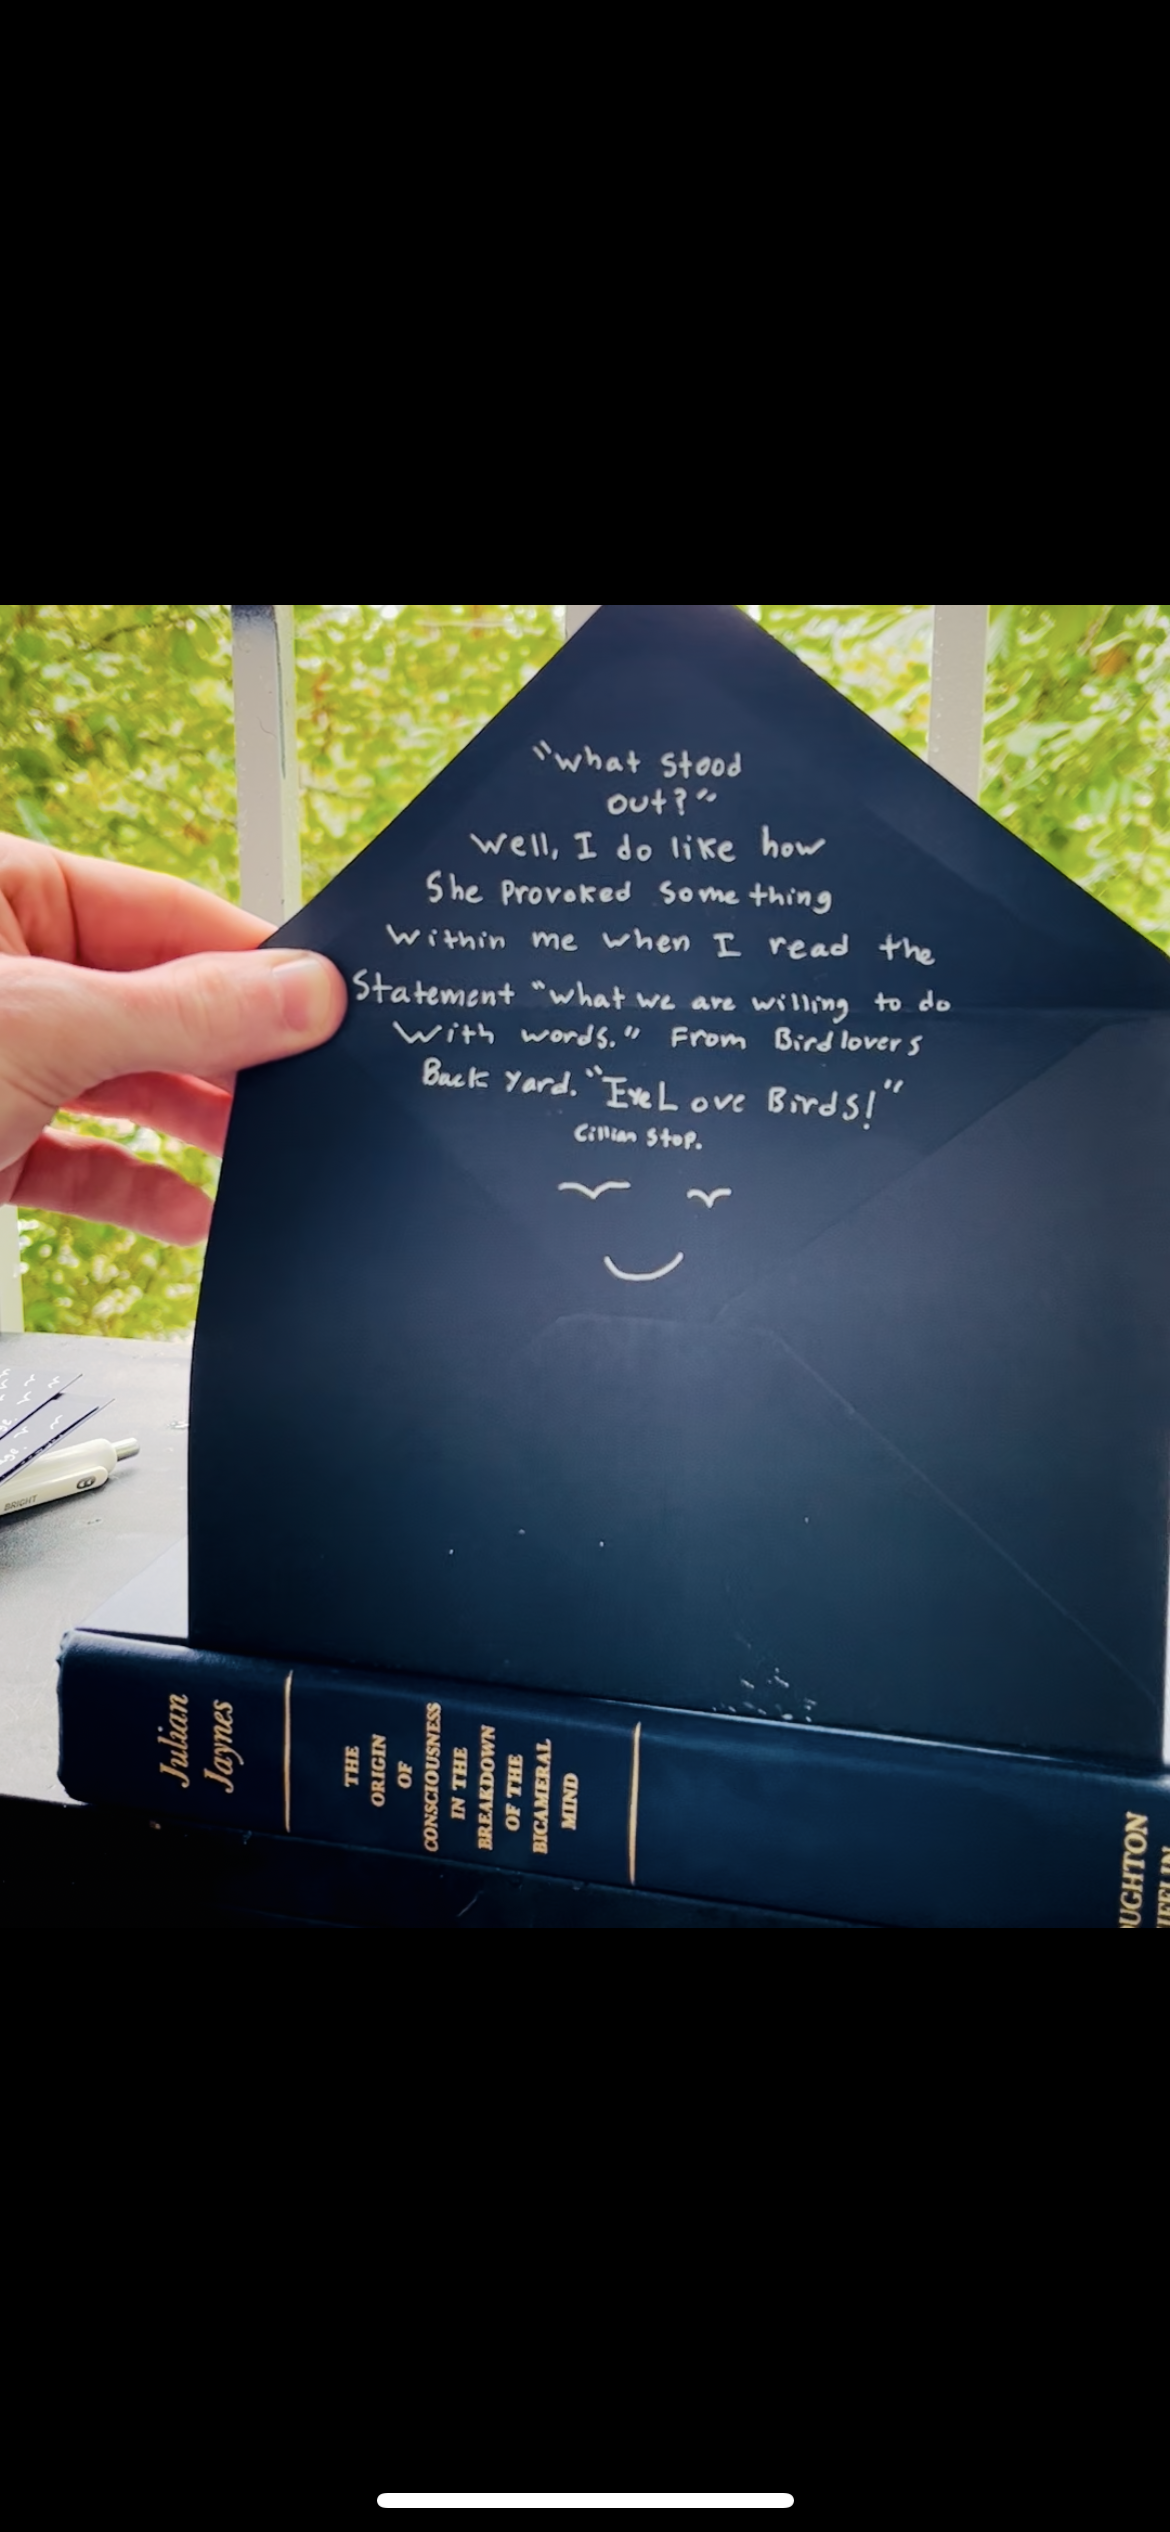 "What Stood
out?"
Well, I do like how
She Provoked Something
Within me when I read the
Statement "What we are willing to do
With words." From Birdlovers
Back Yard. "
Love Birds!"
Cillian Stop.
BRIGHT
Julian
Jaynes
THE
ORIGIN
OF
CONSCIOUSNESS
IN THE
BREAKDOWN
OF THE
BICAMERAL
MIND
OUGHTON
IFFLIN